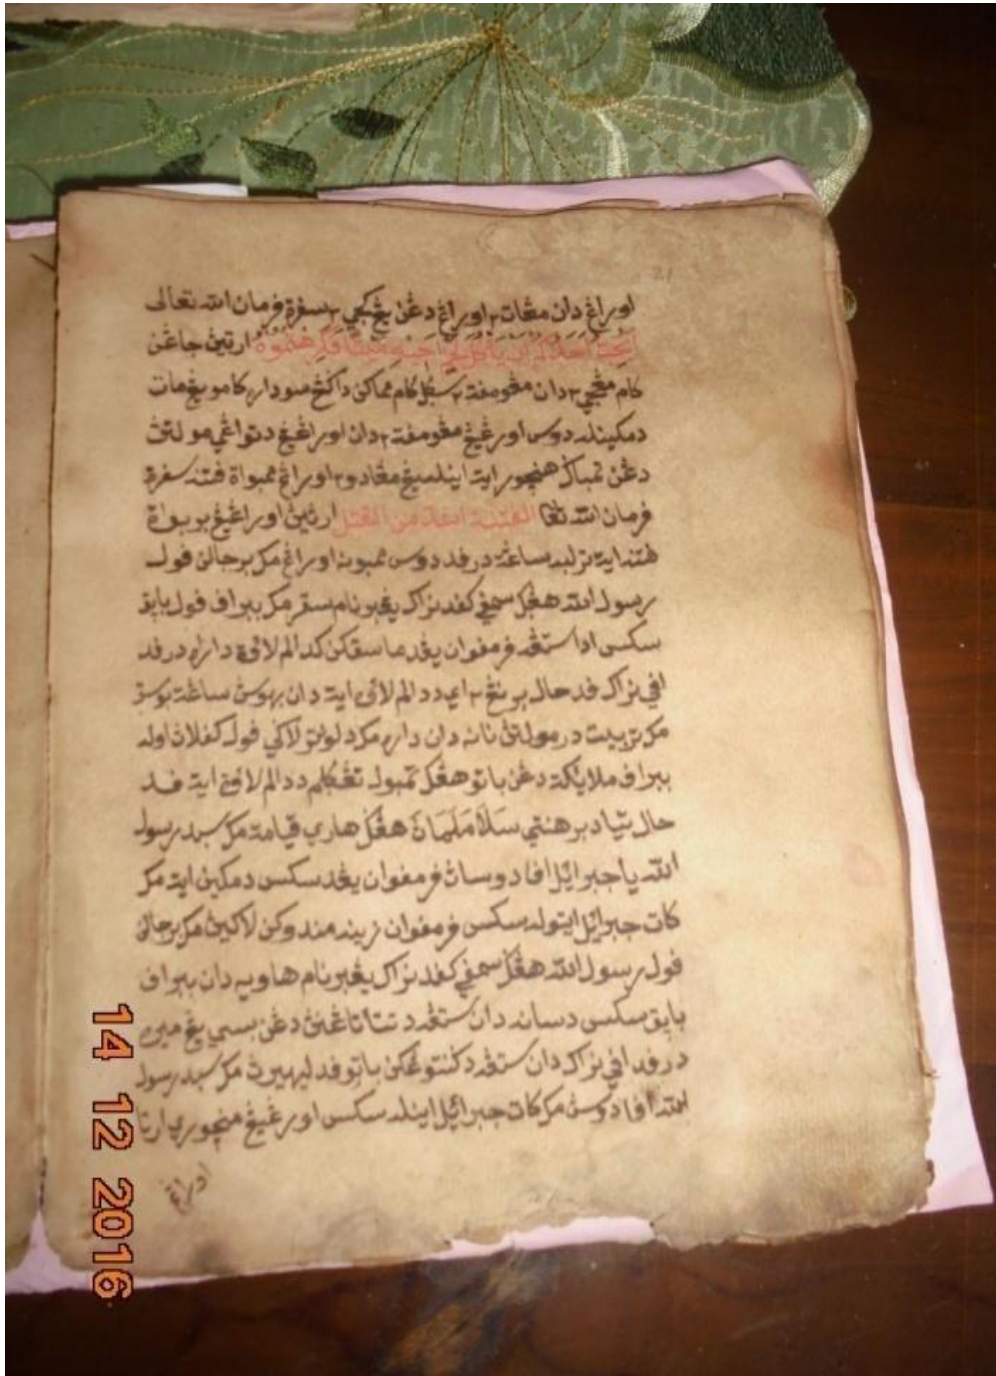 اورڠ دان مڠات٢ اورڠ دڠن يڠ كجي٢ سفرة فرمان الله تعالى
أيحب أحدكم أن يأكل لحم أخيه ميتا فكرهتموه ارتين جاڠن
كام مڠجي٢ دان مڠومفة٢ سڬل كام مماكن داڬيڠ سودارا كامو يڠ مات
دمكينله دوس اورڠ يڠ مڠومفة٢ دان اورڠ يڠ دتواڠي مولتن
دڠن تمباڬ هنچور ايت اينله يڠ مڠادو٢ اورڠ ممبواة فتنه سفرة
فرمان الله تعا الفتنة اشد من القتل ارتين اورڠ يڠ بربواة
فتنه ايت ترلبه ساڠت درفد دوس ممبونه اورڠ مك برجالن فول
رسول الله هڠڬ سمفي كفد نراك يڠ برنام سقر مك ببراف فول بايق
سكس اد ستڠه فرمفوان يڠ دماسقكن كدالم لائوة داره درفد
افي نراك فد حال برنڠ٢ اي ددالم لائوة ايت دان بهوسن ساڠت بوسق
مك تربيت در مولتن نانه دان داره مك دلونتر لاڬي فول كفلان اوله
ببراف ملائكة دڠن باتو هڠڬ تمبوله تڠڬلم ددالم لائوة ايت فد
حال تياد برهنتي سلاملمان هڠڬ هاري قيامة مك سبد رسول
الله يا جبرائيل افا دوسان فرمفوان يڠ د سكس دمكين ايت مك
كات جبرائيل ايتوله سكس فرمفوان يڠ مندوكن لاكين مك برجالن
فول رسول الله هڠڬ سمفي كفد نراك يڠ برنام هاويه دان ببراف
بايق سكس دسانه دان ستڠه د تتاتاڠنن دڠن بسي يڠ ميره
درفد افي نراك دان ستڠه دڬنتوڠكن باتو فد ليهيرن مك سبد رسول
الله افا دوسن مك كات جبرائيل اينله سكس اورڠ يڠ منچوري ارتا
اورڠ
14 12 2016